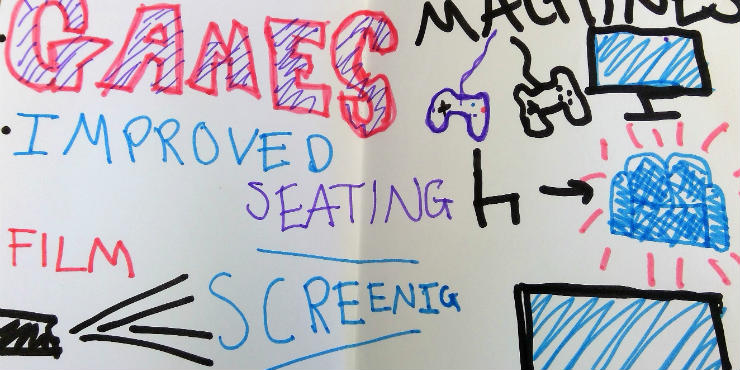 GAMES MACHINES
• IMPROVED
SEATING
FILM
SCREENIG